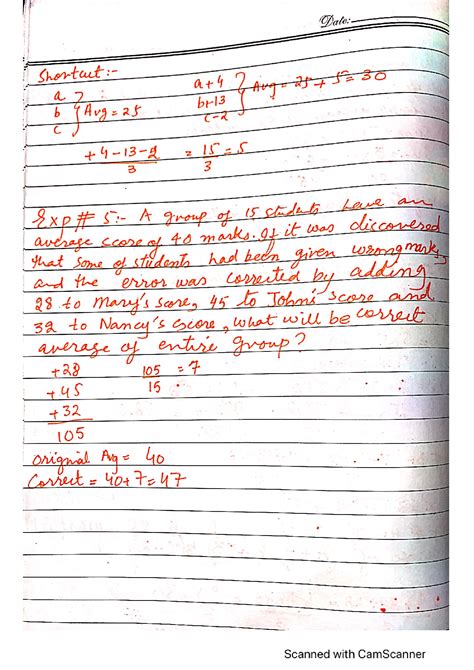 Date:
Shortcut :-
a
b } Avg = 25
c
a+4
b+13 } Avg = 25 + 5 = 30
c-2
+4-13-2 / 3 = 15/3 = 5
Exp # 5:- A group of 15 students have an
average score of 40 marks. If it was discovered
that some of students had been given wrong marks,
and the error was corrected by adding
28 to Mary's score, 45 to John's score and
32 to Nancy's score, what will be correct
average of entire group?
+28
+45
+32
105
105/15 = 7
Original Avg = 40
Correct = 40+7=47
Scanned with CamScanner